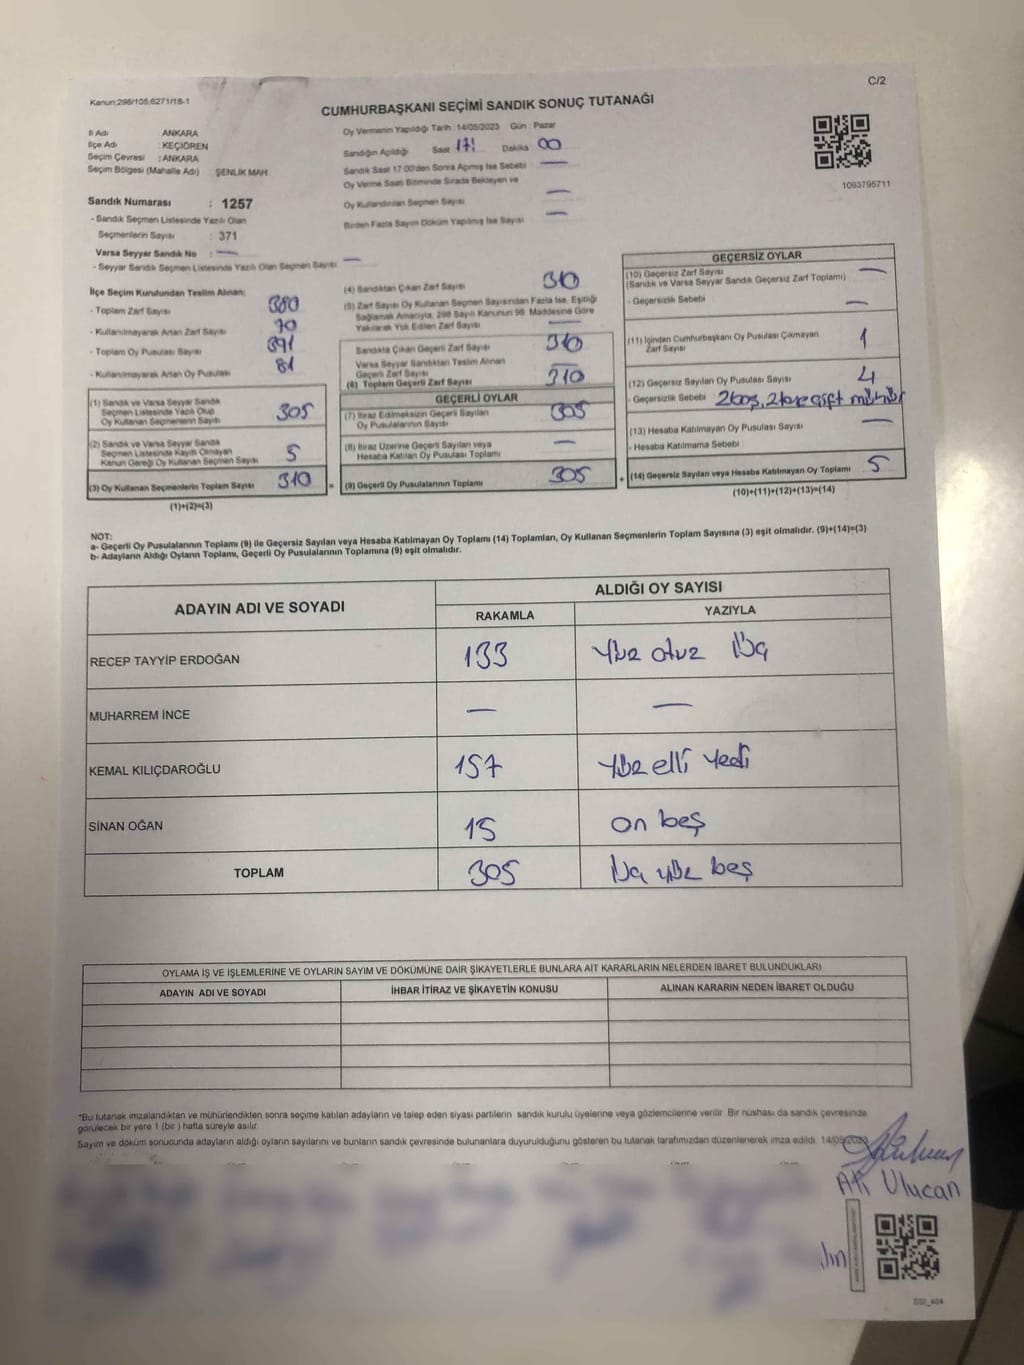 C/2
Kanun;298/105;6271/18-1
CUMHURBAŞKANI SEÇİMİ SANDIK SONUÇ TUTANAĞI
İl Adı ANKARA
İlçe Adı : KEÇİÖREN
Seçim Çevresi : ANKARA
Seçim Bölgesi (Mahalle Adı) : ŞENLİK MAH
Sandık Numarası : 1257
- Sandık Seçmen Listesinde Yazılı Olan
Seçmenlerin Sayısı : 371
Varsa Seyyar Sandık No : —
- Seyyar Sandık Seçmen Listesinde Yazılı Olan Seçmen Sayısı —
Oy Vermenin Yapıldığı Tarih :14/05/2023 Gün : Pazar
Sandığın Açıldığı Saat 17! Dakika 00
Sandık Saat 17:00'den Sonra Açılmış İse Sebebi —
Oy Verme Saati Bitiminde Sırada Bekleyen ve
Oy Kullandırılan Seçmen Sayısı —
Birden Fazla Sayım Döküm Yapılmış İse Sayısı —
1093795711
İlçe Seçim Kurulundan Teslim Alınan;
- Toplam Zarf Sayısı 380
- Kullanılmayarak Artan Zarf Sayısı 70
- Toplam Oy Pusulası Sayısı 391
- Kullanılmayarak Artan Oy Pusulası 81
(1) Sandık ve Varsa Seyyar Sandık
Seçmen Listesinde Yazılı Olup
Oy Kullanan Seçmenlerin Sayısı 305
(2) Sandık ve Varsa Seyyar Sandık
Seçmen Listesinde Kayıtlı Olmayan
Kanun Gereği Oy Kullanan Seçmen Sayısı 5
(3) Oy Kullanan Seçmenlerin Toplam Sayısı 310 =
(1)+(2)=(3)
(4) Sandıktan Çıkan Zarf Sayısı 310
(5) Zarf Sayısı Oy Kullanan Seçmen Sayısından Fazla İse, Eşitliği
Sağlamak Amacıyla, 298 Sayılı Kanunun 98. Maddesine Göre
Yakılarak Yok Edilen Zarf Sayısı —
Sandıkta Çıkan Geçerli Zarf Sayısı 310
Varsa Seyyar Sandıktan Teslim Alınan
Geçerli Zarf Sayısı —
(6) Toplam Geçerli Zarf Sayısı 310
GEÇERLİ OYLAR
(7) İtiraz Edilmeksizin Geçerli Sayılan
Oy Pusulalarının Sayısı 305
(8) İtiraz Üzerine Geçerli Sayılan veya
Hesaba Katılan Oy Pusulası Toplamı —
(9) Geçerli Oy Pusulalarının Toplamı 305 +
GEÇERSİZ OYLAR
(10) Geçersiz Zarf Sayısı —
(Sandık ve Varsa Seyyar Sandık Geçersiz Zarf Toplamı)
- Geçersizlik Sebebi —
(11) İçinden Cumhurbaşkanı Oy Pusulası Çıkmayan
Zarf Sayısı 1
(12) Geçersiz Sayılan Oy Pusulası Sayısı 4
- Geçersizlik Sebebi 2 boş, 2 tane çift mühür
(13) Hesaba Katılmayan Oy Pusulası Sayısı —
- Hesaba Katılmama Sebebi
(14) Geçersiz Sayılan veya Hesaba Katılmayan Oy Toplamı 5
(10)+(11)+(12)+(13)=(14)
NOT:
a- Geçerli Oy Pusulalarının Toplamı (9) ile Geçersiz Sayılan veya Hesaba Katılmayan Oy Toplamı (14) Toplamları, Oy Kullanan Seçmenlerin Toplam Sayısına (3) eşit olmalıdır. (9)+(14)=(3)
b- Adayların Aldığı Oyların Toplamı, Geçerli Oy Pusulalarının Toplamına (9) eşit olmalıdır.
ADAYIN ADI VE SOYADI
ALDIĞI OY SAYISI
RAKAMLA YAZIYLA
RECEP TAYYİP ERDOĞAN 133 Yüz otuz Üç
MUHARREM İNCE — —
KEMAL KILIÇDAROĞLU 157 Yüz elli Yedi
SİNAN OĞAN 15 on beş
TOPLAM 305 Üç yüz beş
OYLAMA İŞ VE İŞLEMLERİNE VE OYLARIN SAYIM VE DÖKÜMÜNE DAİR ŞİKAYETLERLE BUNLARA AİT KARARLARIN NELERDEN İBARET BULUNDUKLARI
ADAYIN ADI VE SOYADI İHBAR İTİRAZ VE ŞİKAYETİN KONUSU ALINAN KARARIN NEDEN İBARET OLDUĞU
*Bu tutanak imzalandıktan ve mühürlendikten sonra seçime katılan adayların ve talep eden siyasi partilerin sandık kurulu üyelerine veya gözlemcilerine verilir. Bir nüshası da sandık çevresinde
görülecek bir yere 1 (bir ) hafta süreyle asılır.
Sayım ve döküm sonucunda adayların aldığı oyların sayılarını ve bunların sandık çevresinde bulunanlara duyurulduğunu gösteren bu tutanak tarafımızdan düzenlenerek imza edildi. 14/05/2023
Ali Ulucan
SSI_404